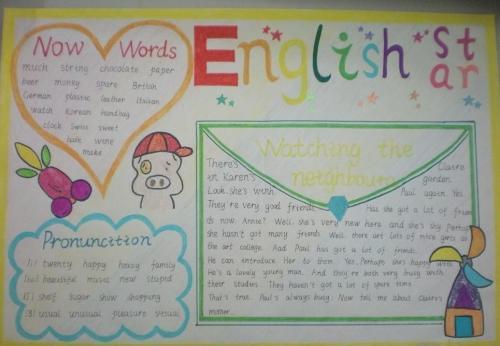 Now Words
much string chocolate paper
beer money spare British
German plastic leather Italian
watch Korean handbag
clock Swiss sweet
hate wine
make
English star
Pronunction
[i] twenty happy heavy family
[ju:] beautiful music new stupid
[ʃ] shelf sugar show shopping
[ʒ] usual unusual pleasure
Watching the
neighbours
There's Claire
in Karen's garden.
Look. She's with Paul again. Yes.
They're very good friends. Has she got a lot of
now. Annie? Well. she's very new here and she's shy. Perhaps
She hasn't got many friends. Well. there are lots of nice girls at
the art college. And Paul has got a lot of friends.
He can introduce Her to them. Yes. Perhaps she's happy with
He's a lovely young man. And they're both very busy with
their studies. They haven't got a lot of spare time
That's true. Paul's always busy. Now tell me about Claire's
mother...